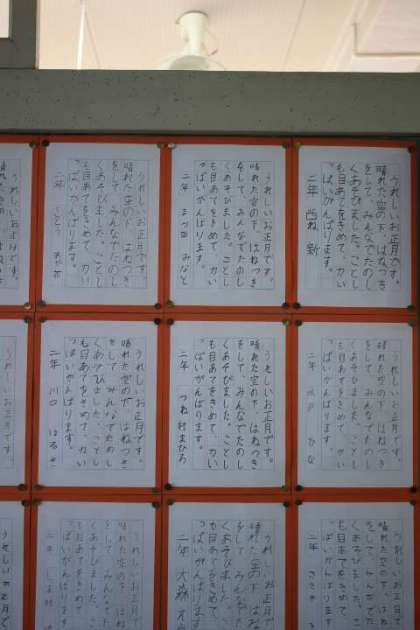 うれしいお正月です。
晴れた空の下、はねつき
をして、みんなでたのし
くあそびました。ことし
も目あてをきめて、力い
っぱいがんばります。
二年
うれしいお正月です。
晴れた空の下、はねつき
をして、みんなでたのし
くあそびました。ことし
も目あてをきめて、力い
っぱいがんばります。
二年 みなと
うれしいお正月です。
晴れた空の下、はねつき
をして、みんなでたのし
くあそびました。ことし
も目あてをきめて、力い
っぱいがんばります。
二年
うれしいお正月です。
うれしいお正月です。
晴れた空の下、はねつき
をして、みんなでたのし
くあそびました。ことし
も目あてをきめて、力い
っぱいがんばります。
二年 ひな
うれしいお正月です。
晴れた空の下、はねつき
をして、みんなでたのし
くあそびました。ことし
も目あてをきめて、力い
っぱいがんばります。
二年 つね村 まひろ
うれしいお正月です。
晴れた空の下、はねつき
をして、みんなでたのし
くあそびました。ことし
も目あてをきめて、力い
っぱいがんばります。
二年 川口
うれしいお正月です。
うれしいお正月
晴れた空の下、はね
をして、みんなで
くあそびました。
も目あてをきめて
っぱいがんばり
二年
うれしいお正月
晴れた空の下、はね
をして、みんなで
くあそびました。
も目あてをきめて
っぱいがんばりま
二年 大森
うれしいお正月
晴れた空の下、はね
をして、みんな
くあそびました。
も目あてをきめ
っぱいがんばり
二年
うれしいお正月で